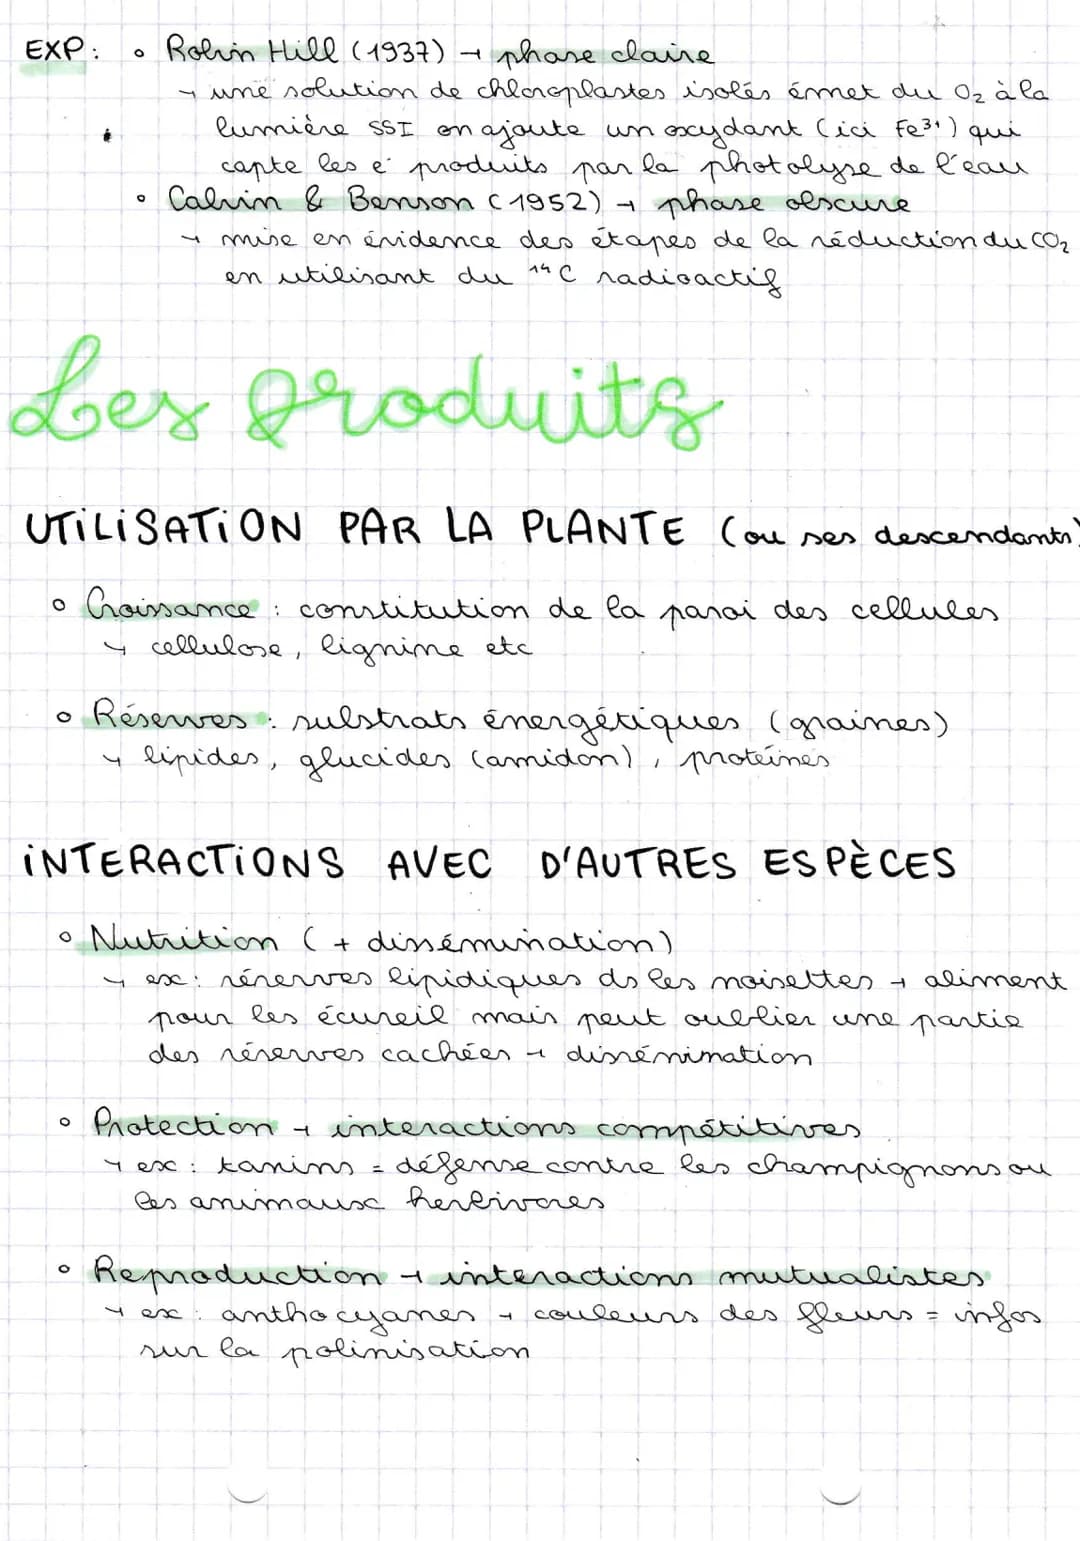 EXP: ○ Robin Hill (1937) → phase claire
→ une solution de chloroplastes isolés émet du O₂ à la
lumière SSI on ajoute un oxydant (ici Fe³⁺) qui
capte les e⁻ produits par la photolyse de l'eau
○ Calvin & Benson (1952) → phase obscure
→ mise en évidence des étapes de la réduction du CO₂
en utilisant du ¹⁴C radioactif
Les produits
UTILISATION PAR LA PLANTE (ou ses descendants)
○ Croissance : constitution de la paroi des cellules
↳ cellulose, lignine etc
○ Réserves : substrats énergétiques (graines)
↳ lipides, glucides (amidon), protéines
INTERACTIONS AVEC D'AUTRES ESPÈCES
○ Nutrition (+ dissémination)
↳ ex: réserves lipidiques ds les noisettes → aliment
pour les écureil mais peut oublier une partie
des réserves cachées → dissémination
○ Protection → interactions compétitives
↳ ex: tanins = défense contre les champignons ou
les animaux herbivores
○ Reproduction → interactions mutualistes
↳ ex: anthocyanes → couleurs des fleurs = infos
sur la polinisation